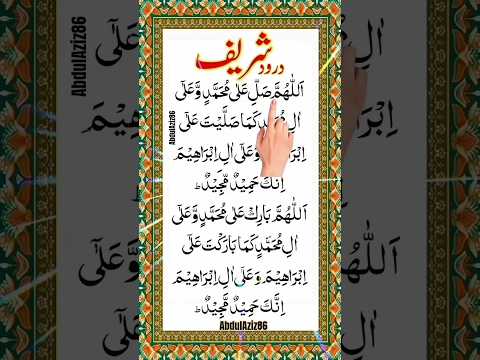 درود شریف
اَللّٰهُمَّ صَلِّ عَلٰی مُحَمَّدٍ وَّعَلٰٓی
اٰلِ مُحَمَّدٍ كَمَا صَلَّیْتَ عَلٰٓی
اِبْرَاهِیْمَ وَعَلٰٓی اٰلِ اِبْرَاهِیْمَ
اِنَّكَ حَمِیْدٌ مَّجِیْدٌ ط
اَللّٰهُمَّ بَارِكْ عَلٰی مُحَمَّدٍ وَّعَلٰٓی
اٰلِ مُحَمَّدٍ كَمَا بَارَكْتَ عَلٰٓی
اِبْرَاهِیْمَ وَعَلٰٓی اٰلِ اِبْرَاهِیْمَ
اِنَّكَ حَمِیْدٌ مَّجِیْدٌ ط
AbdulAziz86
AbdulAziz86
AbdulAziz86